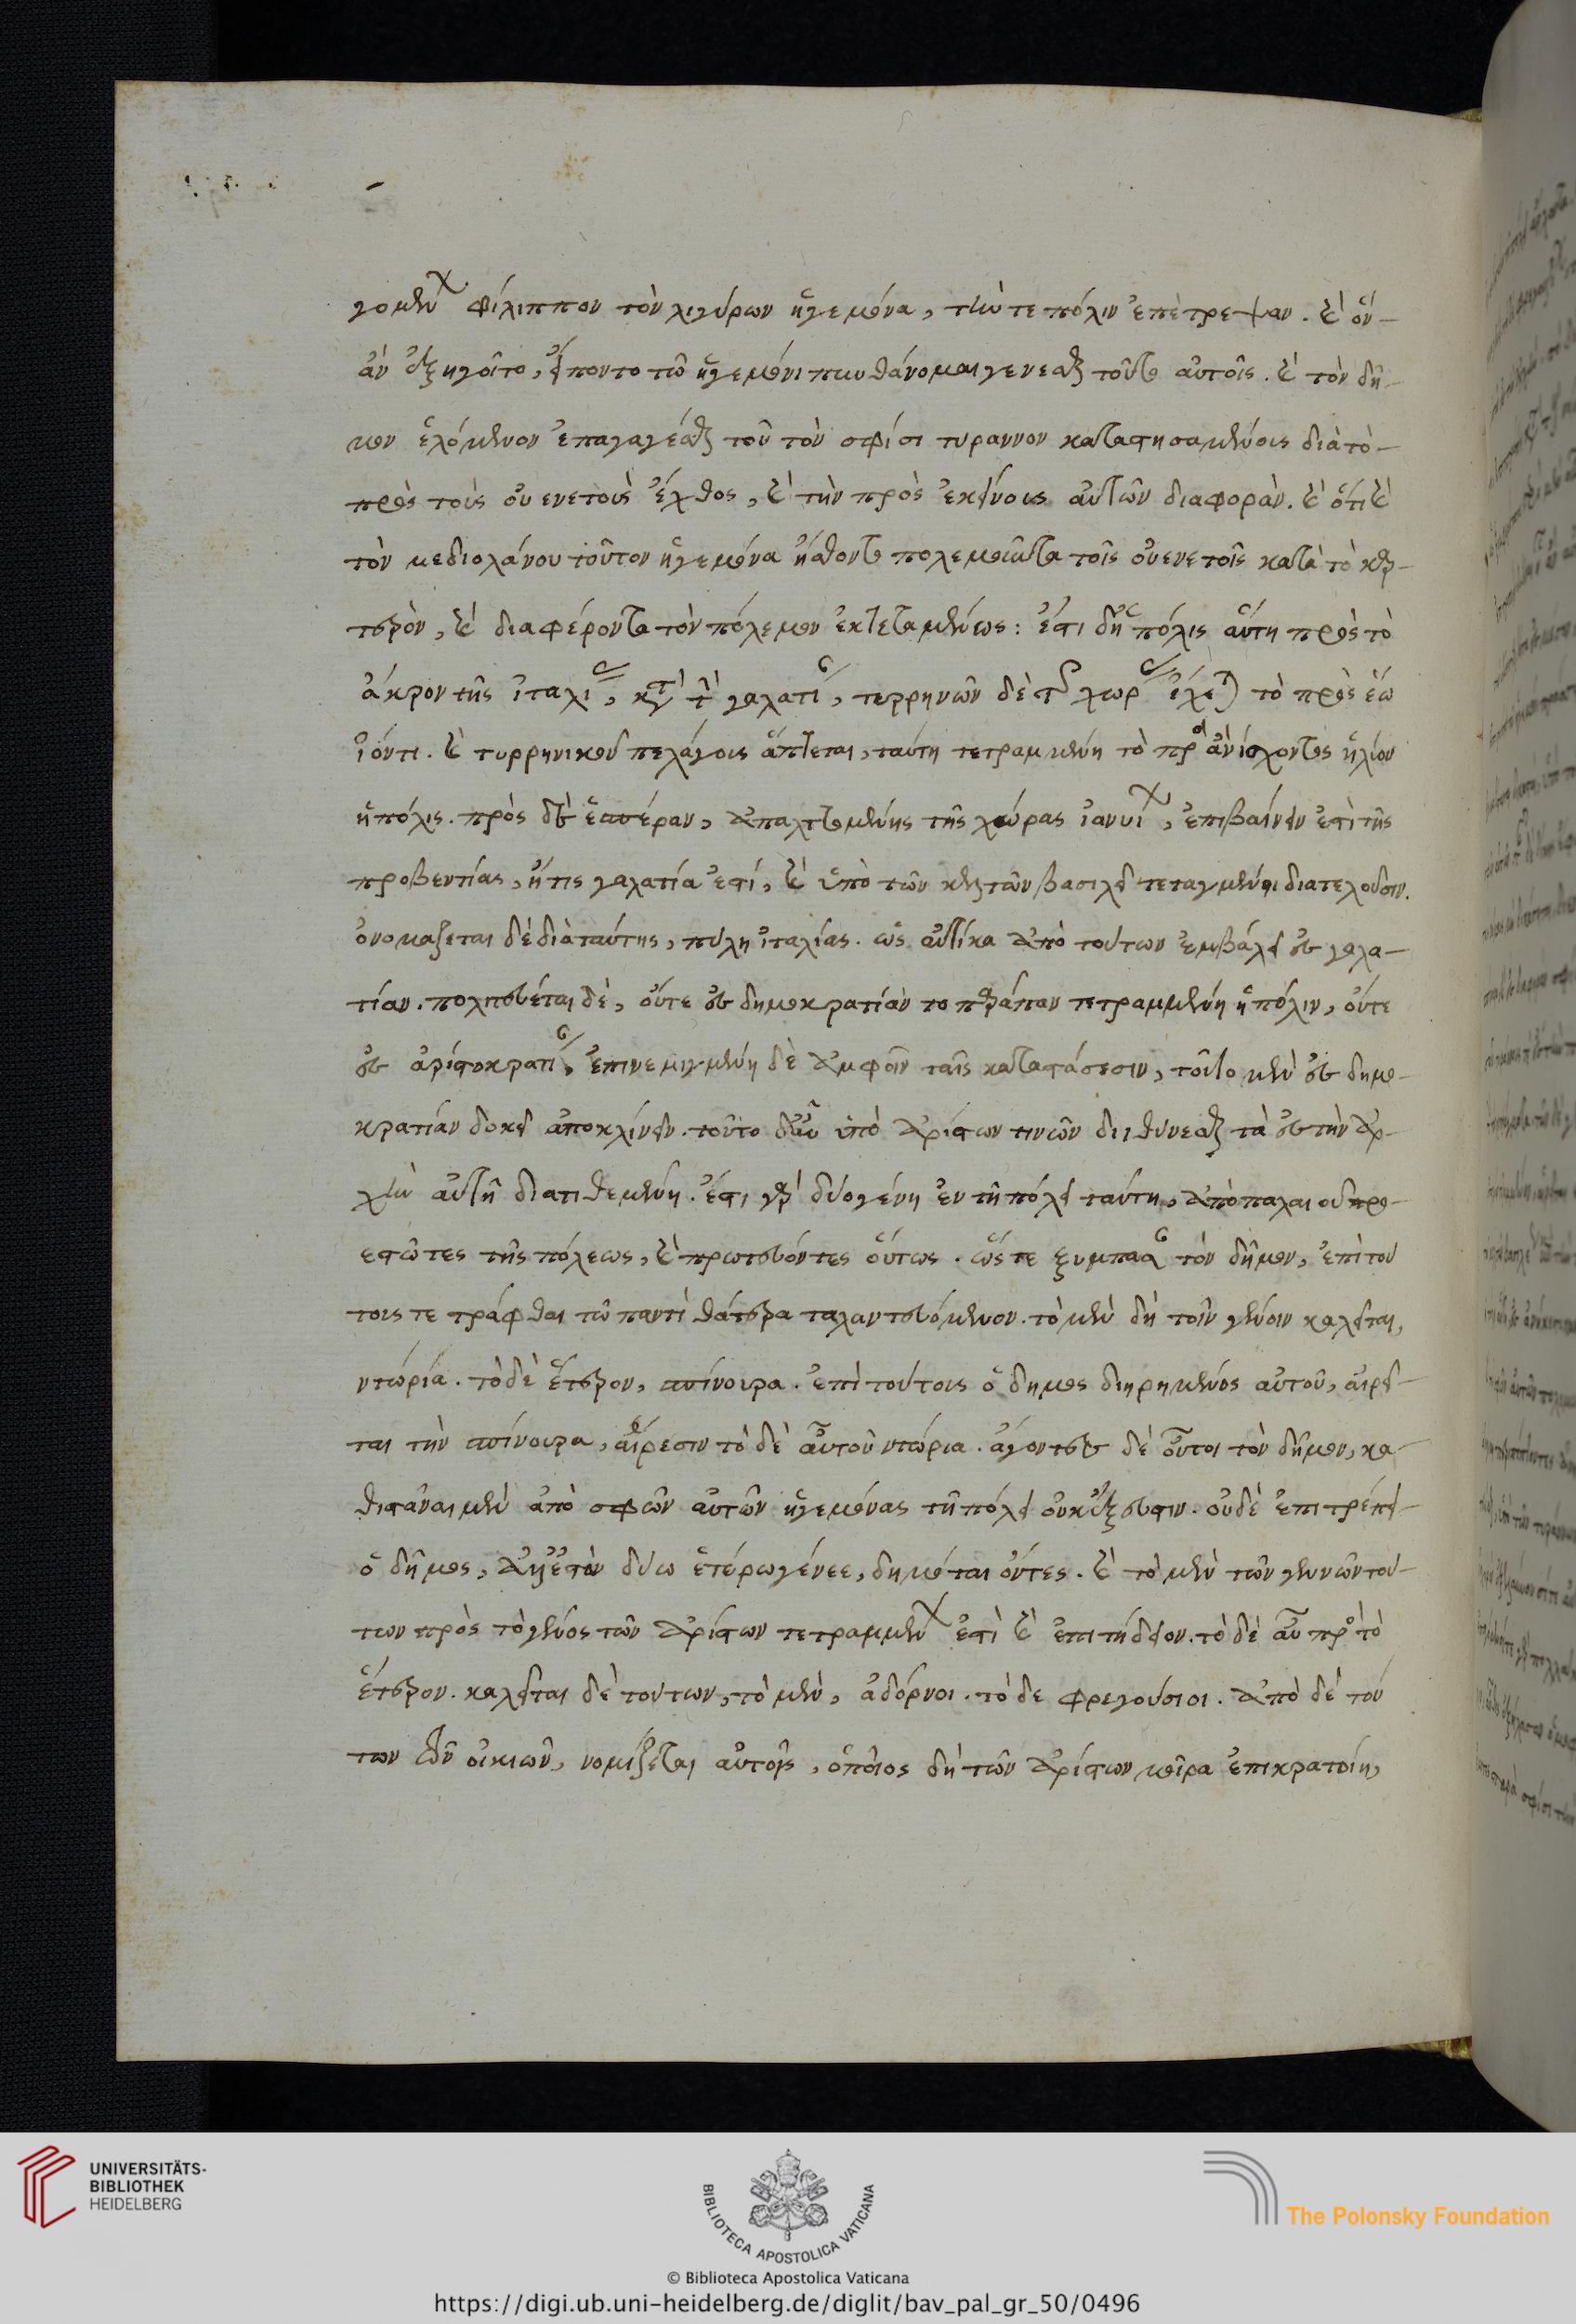 γομεν Φίλιππον τὸν λιγύρων ἡγεμόνα, τήν τε πόλιν ἐπέτρεψαν. καὶ ὃν
ἂν ἐξηγοῖτο, ἕποντο τῶ ἡγεμόνι πυνθάνομαι γενέσθαι τοῦτο αὐτοῖς. καὶ τὸν δῆ-
μον ἑλόμενον ἐπαγαγέσθαι τοῦτόν σφίσι τύραννον καταστησαμένοις διὰ τὸ
πρὸς τοὺς οὐενετοὺς ἔχθος, καὶ τὴν πρὸς ἐκείνους αὐτῶν διαφοράν. καὶ ὅτι καὶ
τὸν μεδιολάνου τοῦτον ἡγεμόνα ᾔσθοντο πολεμοῦντα τοῖς οὐενετοῖς κατὰ τὸ καρ-
τερόν, καὶ διαφέροντα τὸν πόλεμον ἐκτεταμένως: ἔστι δὴ πόλις αὕτη πρὸς τὸ
ἄκρον τῆς ἰταλίας, κατὰ τὴν γαλατίαν, τερρηνῶν δὲ τῆς χώρας ἔχεται τὸ πρὸς ἕω
ἰόντι. καὶ τυρρηνικοῦ πελάγους ἅπτεται, ταύτῃ τετραμμένη τὸ πρὸς ἀνίσχοντος ἡλίου
ἡ πόλις. πρὸς δὲ ἑσπέραν, ἀπαλτομένης τῆς χώρας ἰανυί, ἐπιβαίνειν ἐστὶ τῆς
προβεντίας, ἥτις γαλατία ἐστί, καὶ ὑπὸ τῶν κελτῶν βασιλεῖ τεταγμένοι διατελοῦσιν.
ὀνομάζεται δὲ διὰ ταύτης, πύλη ἰταλίας. ὡς αὐτίκα ἀπὸ τούτων ἐμβάλει ἐς γαλα-
τίαν. πολιτεύεται δέ, οὔτε ἐς δημοκρατίαν τὸ παράπαν τετραμμένη ἡ πόλιν, οὔτε
ἐς ἀριστοκρατίαν, ἐπινεμιγμένη δὲ ἀμφοῖν ταῖς καταστάσεσιν, τοῦτο μὲν ἐς δημο-
κρατίαν δοκεῖ ἀποκλίνειν. τοῦτο δ' αὖ ὑπὸ ἀρίστων τινῶν διιθύνεσθαι τὰ ἐς τὴν ἀρ-
χὴν αὐτῇ διατιθεμένη. ἔστι γὰρ δύο γένη ἐν τῇ πόλει ταύτῃ, ἀπὸ πάλαι οὑ προ-
εστῶτες τῆς πόλεως, καὶ πρωτεύοντες οὕτως. ὥς τε ξύμπαντα τὸν δῆμον, ἐπὶ του
τοις τετράφθαι τῶ παντὶ θάτερα ταλαντευόμενον. τὸ μὲν δὴ τοῖν γένοιν καλεῖται,
ντώρία. τὸ δὲ ἕτερον, σπίνουρα. ἐπὶ τούτοις ὁ δῆμος διῃρημένος αὐτοῦ, αἱρεῖ-
ται τὴν σπίνουρα, αἵρεσιν τὸ δὲ αὐτοῦ ντώρια. ἄγοντες δὲ οὗτοι τὸν δῆμον, κα-
θιστάναι μὲν ἀπὸ σφῶν αὐτῶν ἡγεμόνας τῇ πόλει οὐκ ἔξεστιν. οὐδὲ ἐπιτρέπει
ὁ δῆμος, ἀλλ' ἔστον δύω ἑτέρω γένεε, δημόται ὄντες. καὶ τὸ μὲν τῶν γενῶν τού-
των πρὸς τὸ γένος τῶν ἀρίστων τετραμμένον ἐστὶ καὶ ἐπιτήδειον. τὸ δὲ αὖ πρὸς τὸ
ἕτερον. καλεῖται δὲ τούτων, τὸ μέν, ἀδόρνοι. τὸ δὲ φρεγούσιοι. ἀπὸ δὲ τού
των τῶν οἰκιῶν, νομίζεται αὐτοῖς, ὁποῖος δὴ τῶν ἀρίστων μοῖρα ἐπικρατοίη,
UNIVERSITÄTS-
BIBLIOTHEK
HEIDELBERG
BIBLIOTECA APOSTOLICA VATICANA
The Polonsky Foundation
© Biblioteca Apostolica Vaticana
https://digi.ub.uni-heidelberg.de/diglit/bav_pal_gr_50/0496